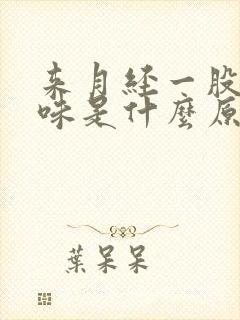 来月经一股
味是什麼原
葉呆呆